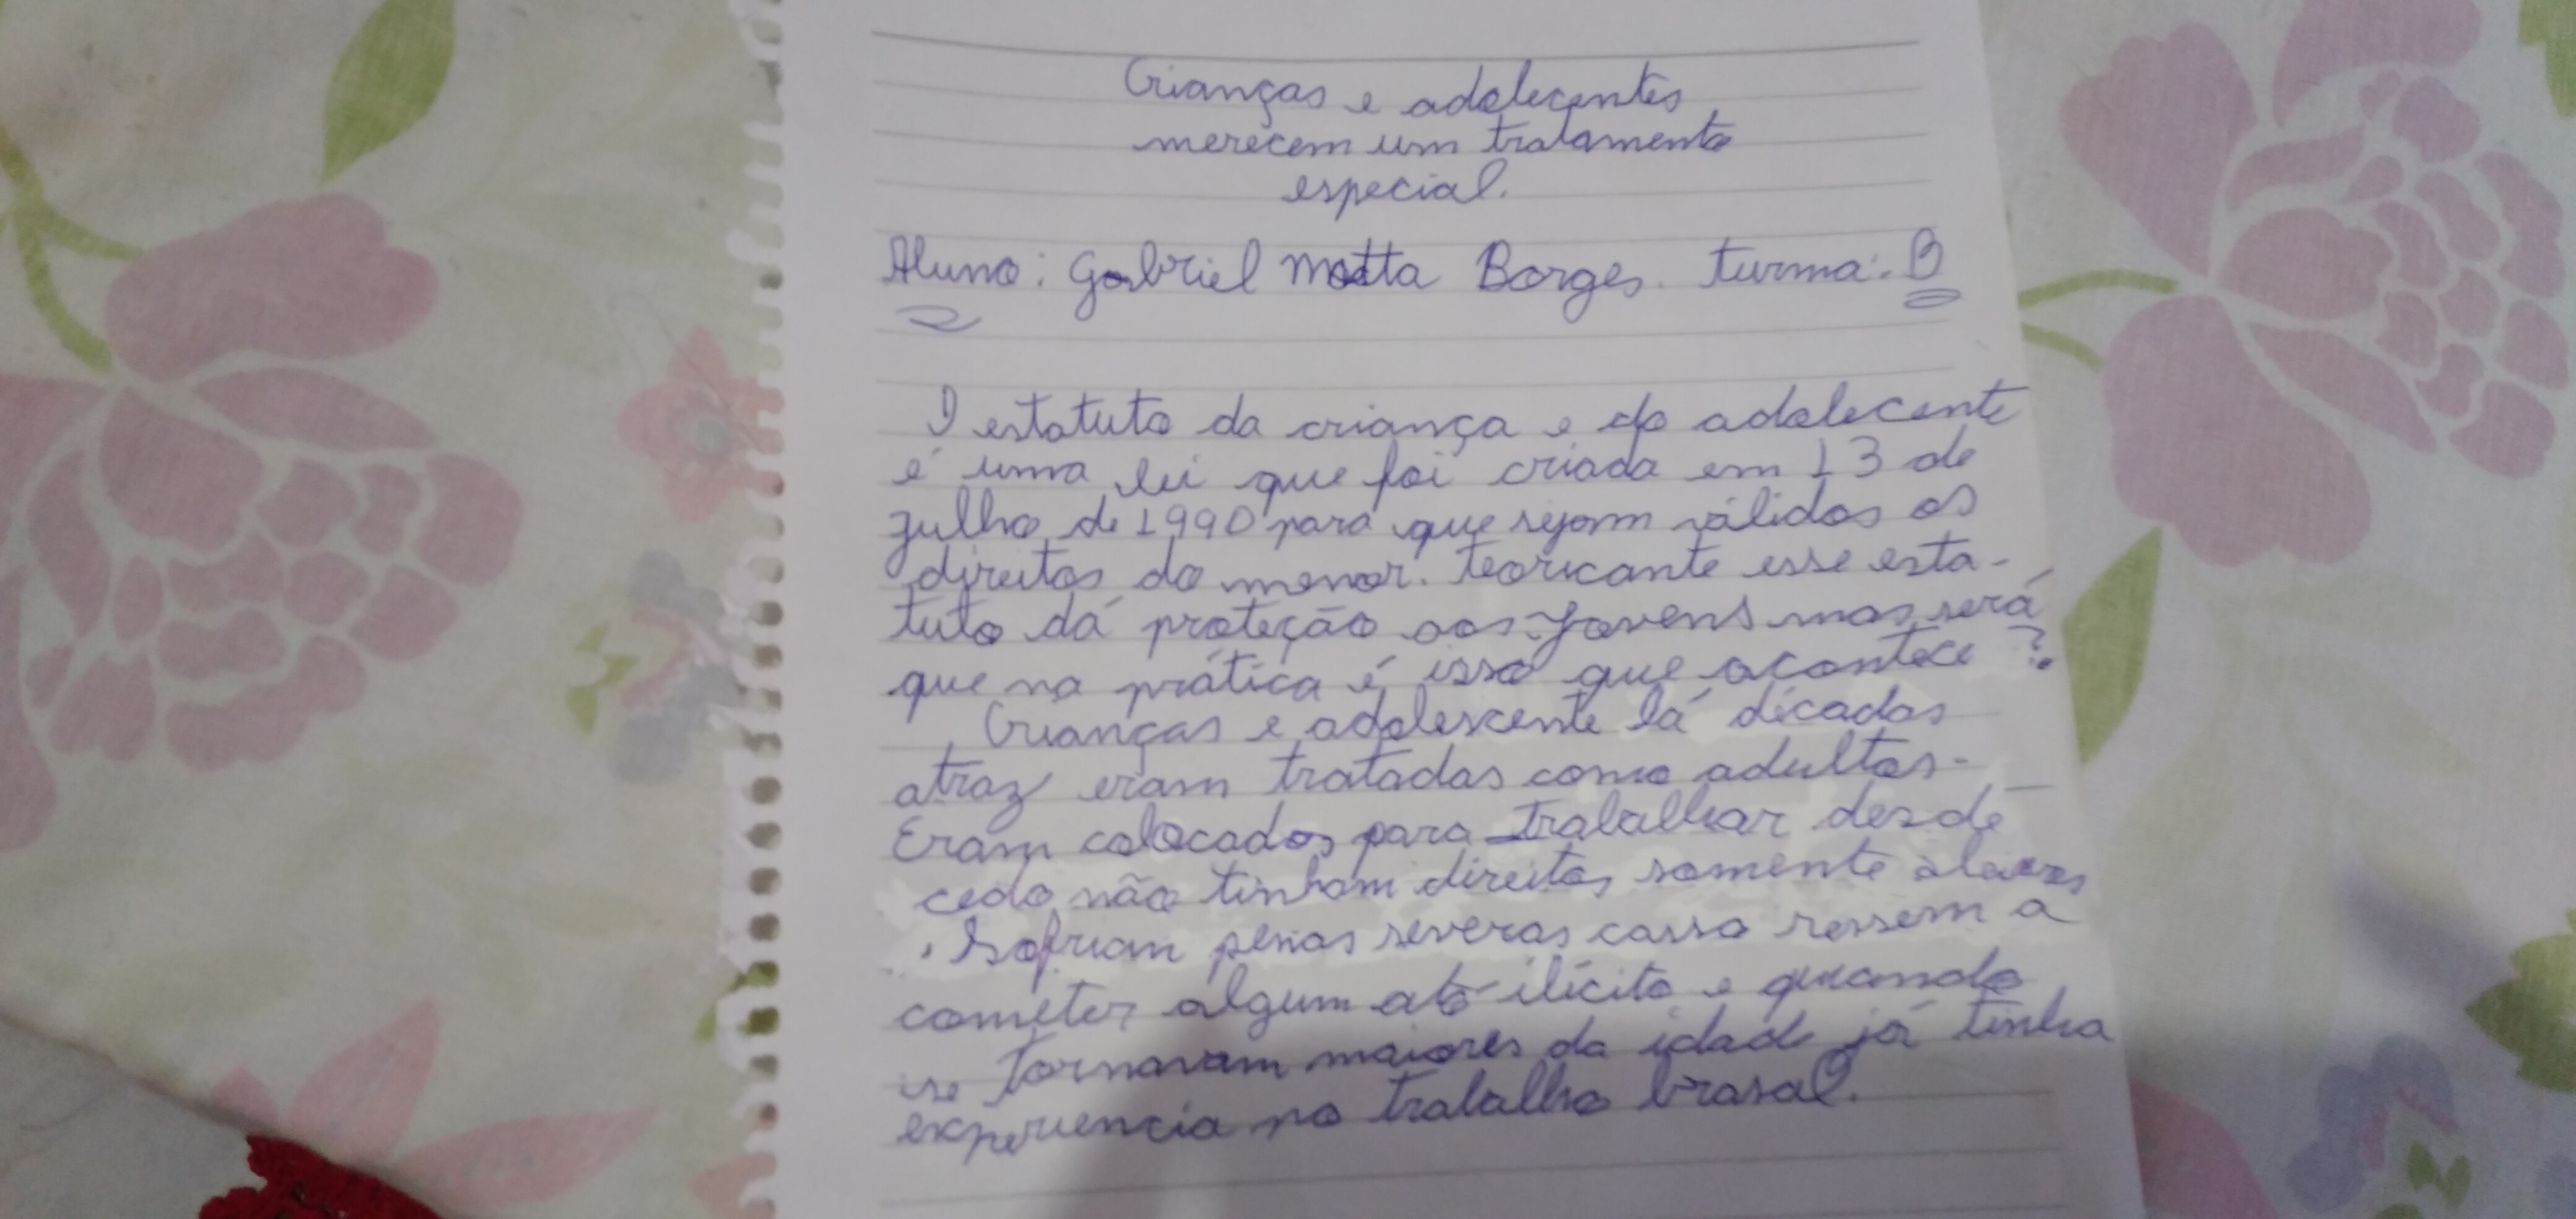 Crianças e adolecentes
merecem um tratamento
especial.
Aluno: Gabriel Motta Borges. turma: B
O estatuto da criança e do adolecente
é uma lei que foi criada em 13 de
julho de 1990 para que sejam válidos os
direitos do menor. teoricante esse esta-
tuto dá proteção aos jovens mas será
que na prática é isso que acontece?
Crianças e adolescente lá décadas
atraz eram tratadas como adultos.
Eram colocados para trabalhar desde
cedo não tinham direitos somente
. sofriam penas severas casso ressem a
cometer algum ato ilícito e quando
se tornavam maiores da idade já tinha
experiencia no trabalho brasal.